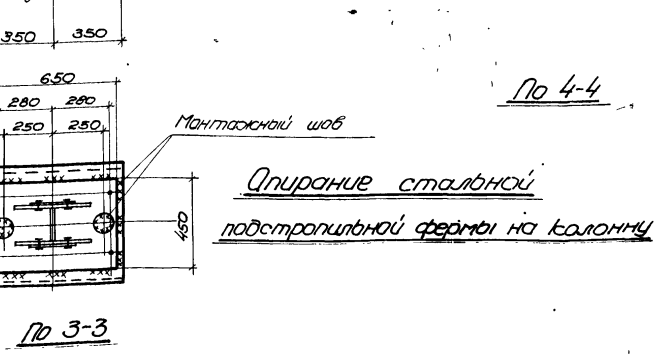 350 350
650
280 280
250 250
450
Монтажный шов
По 3-3
По 4-4
Опирание стальной
подстропильной фермы на колонну